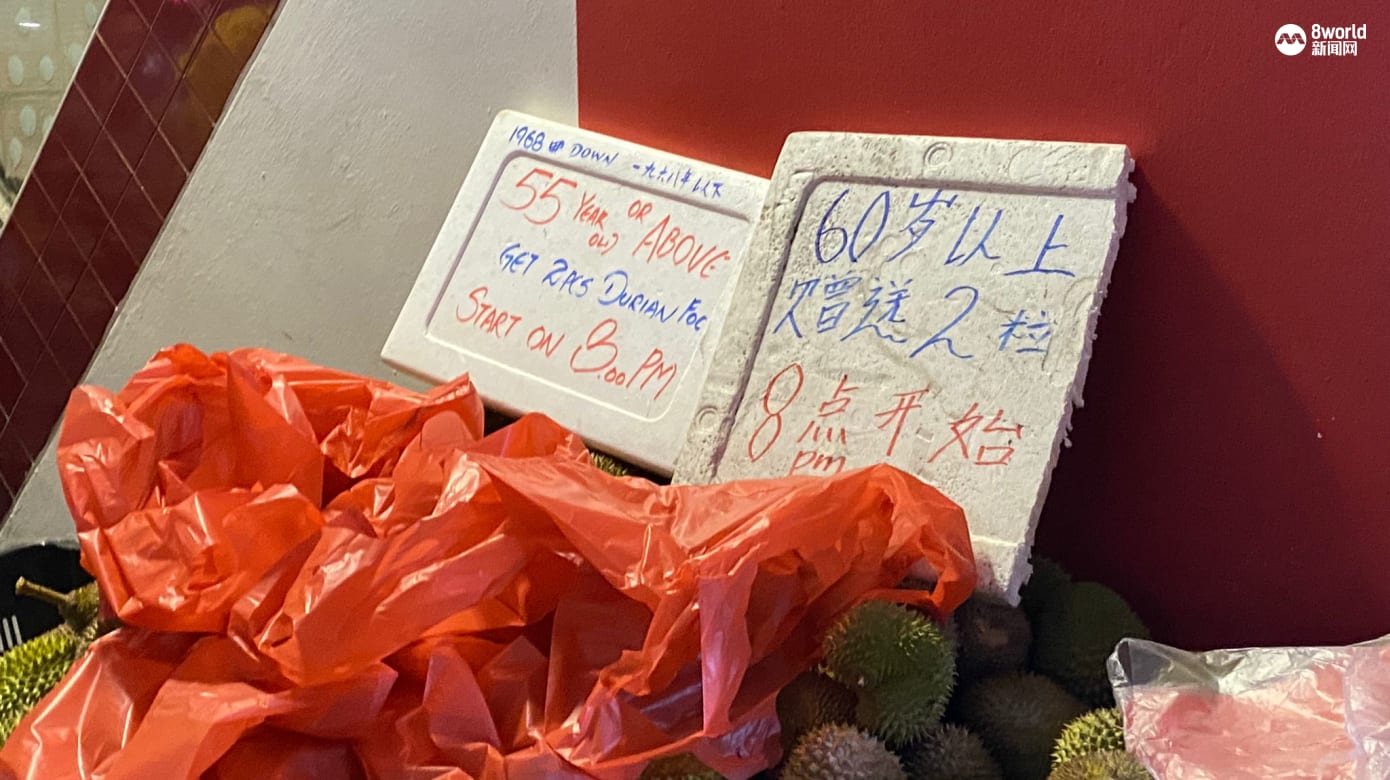 1968 DOWN 一九六八年以下
55 YEAR OLD OR ABOVE
GET 2PCS DURIAN FOC
START ON 8.00 PM
60岁以上
赠送2粒
8点开始
pm
8world
新闻网